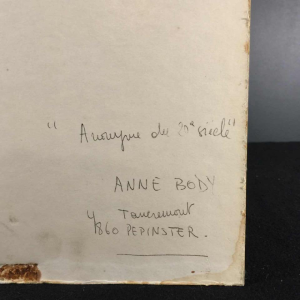 "Anonyme du 20e siècle"
ANNE BODY
4 Tancremont
4860 PEPINSTER.